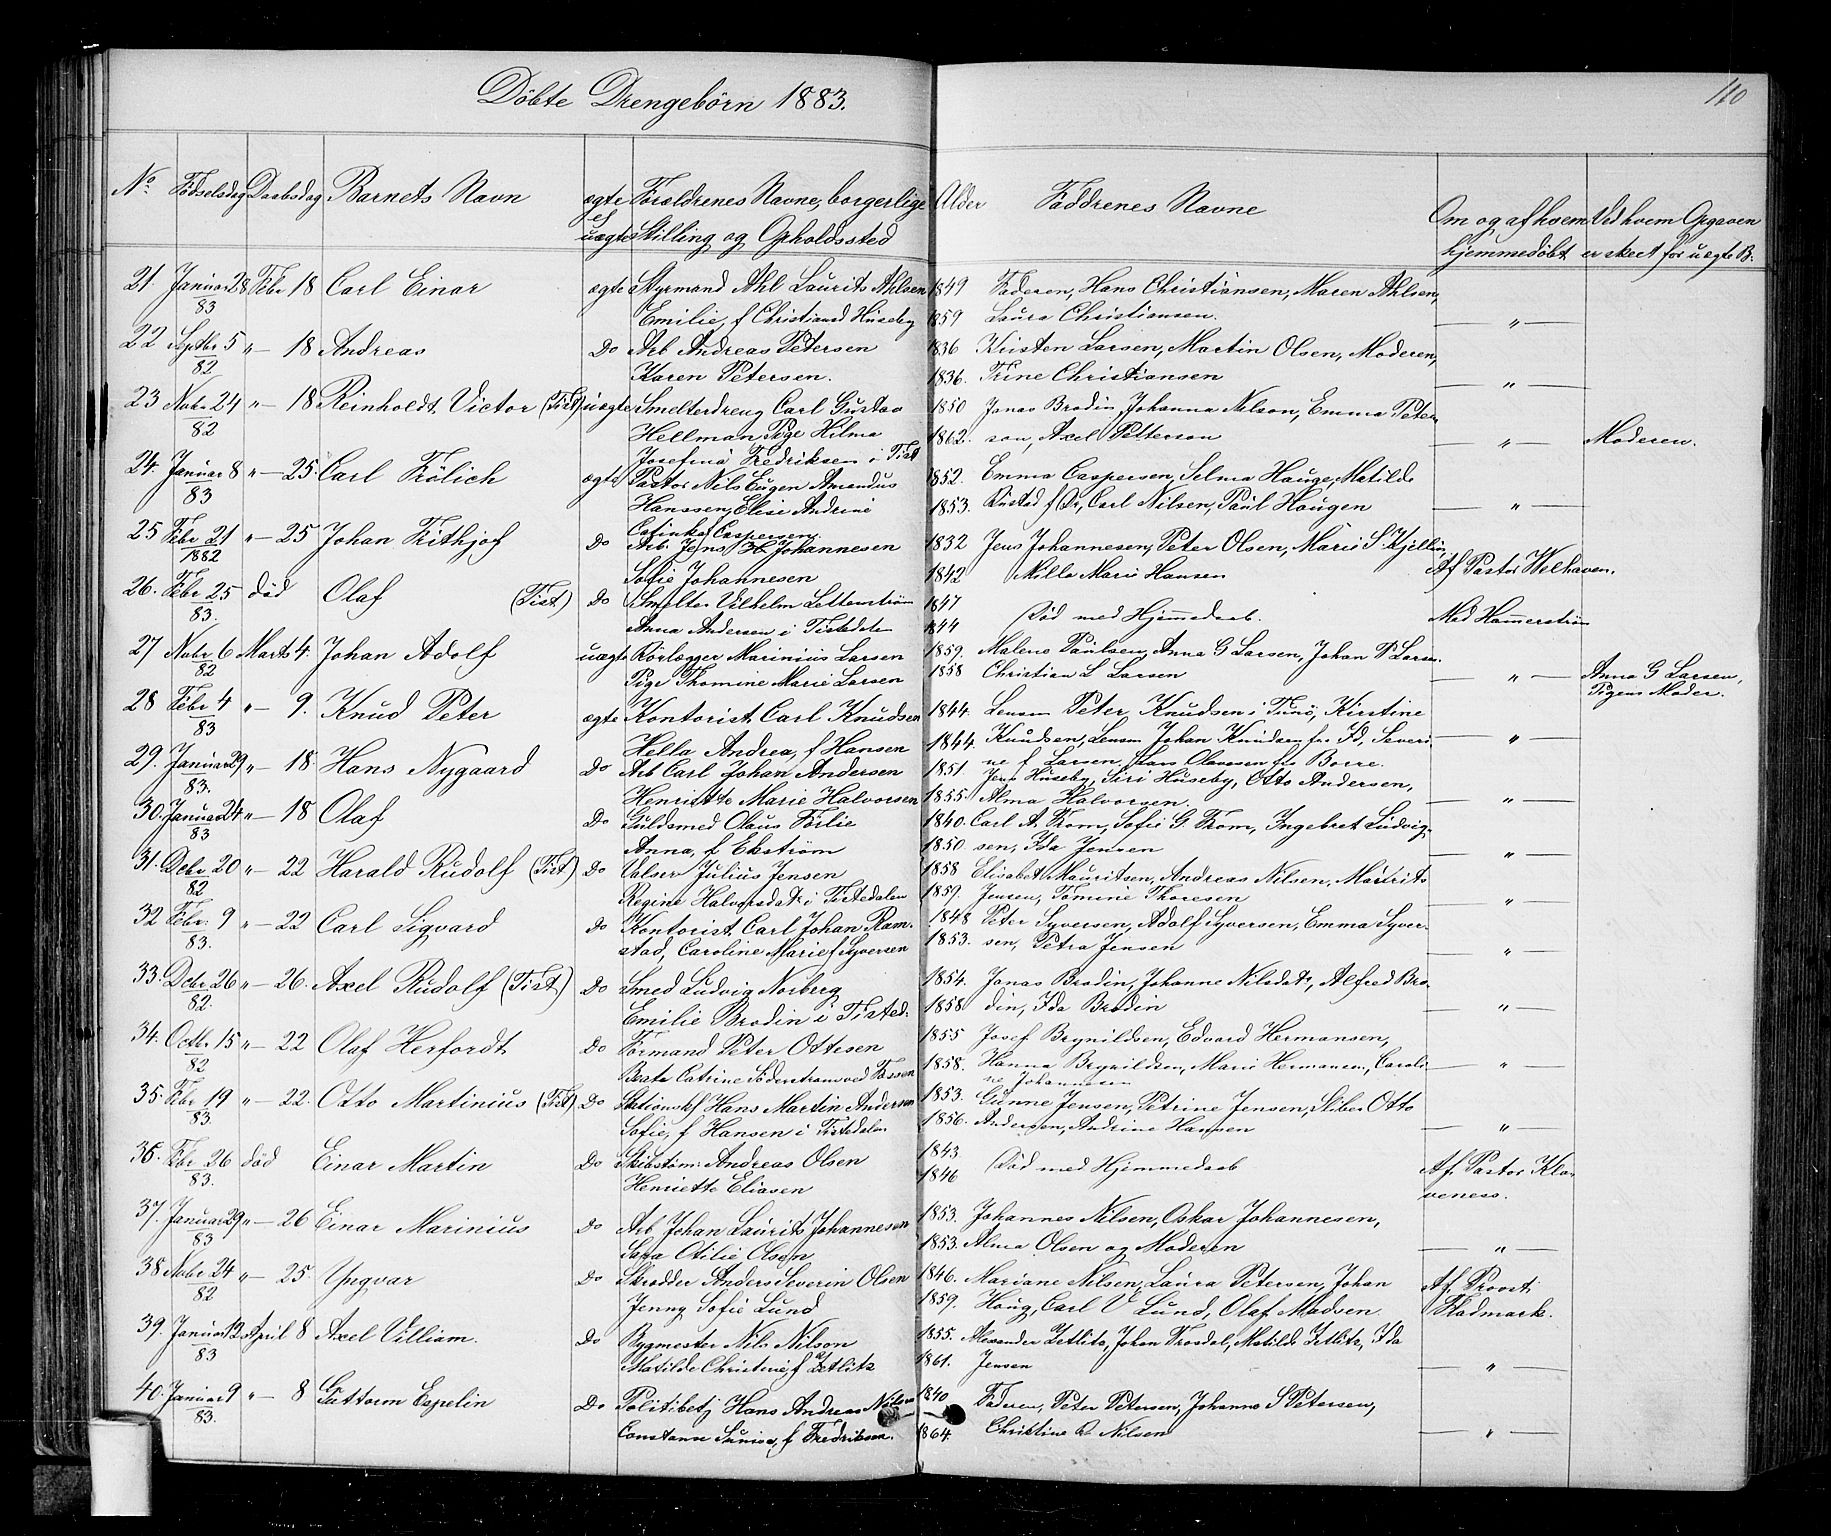 Döbte Drengebörn 1883.
110
No. Födselsdag Daabsdag Barnets Navn ægte el uægte Forældrenes Navne, borgerlige Stilling og Opholdssted Alder Faddrenes Navne Om og af hvem hjemmedöbt Ved hvem Opgaven er skeet for uægte B.
21 Januar 28 Febr 18 Carl Einar ægte Styrmand Ahl Laurits Ahlsen 1849 Faderen, Hans Christiansen, Maren Ahlsen,
83 Emilie, f Christiansd Huseby 1859 Laura Christiansen. — " —
22 Septbr 5 " — 18 Andreas Do Arb Andreas Petersen 1836 Kristen Larsen, Martin Olsen, Moderen,
82 Karen Petersen. 1836. Trine Christiansen — " —
23 Nobr 24 " — 18 Reinholdt Victor (Tist) uægte Smelterdreng Carl Gustav 1850 Jonas Brodin, Johanna Nilson, Emma Peter-
82 Hellman, Pige Hilma 1862. son, Axel Petterson — " — Moderen.
Josefina Fredriksen i Tist
24. Januar 8 " — 25. Carl Frölich ægte Pastor Nils Eugen Amandus 1852. Emma Caspersen, Selma Hauge, Matilde
83 Hanssen, Elise Andrine 1853. Rustad f Dr, Carl Nilsen, Paul Haugen — " —
Cafinka Caspersen.
25 Febr 21 " — 25 Johan Frithjof Do Arb. Jens H. Johannesen 1832 Jens Johannesen, Peter Olsen, Marie S. Kjellin,
1882 Sofie Johannesen 1842 Milla Marie Hansen Af Pastor Welhaven.
26. Febr 25 död Olaf (Tist) Do Smelter Vilhelm Letterström 1847 Död med Hjemmedaab. Mad Hamerström
83. Anna Andersen i Tistedalen 1844
27 Nobr 6 Marts 4. Johan Adolf uægte Rörlægger Marinius Larsen 1859. Malene Paulsen, Anna G Larsen, Johan P Larsen.
82 Pige Thomine Marie Larsen 1858 Christian L Larsen — " — Anna G Larsen, Pigens Moder.
28 Febr 4 " — 9. Knud Peter ægte Kontorist Carl Knudsen 1844. Lensm Peter Knudsen i Tunö, Kirstine
83 Hella Andrea, f Hansen 1844. Knudsen, Lensm Johan Knudsen fra Id, Severi- — " —
ne f Larsen, Hans Olavesen fra Borre.
29. Januar 29 " — 18 Hans Nygaard Do Arb Carl Johan Andersen 1851. Jens Huseby, Siri Huseby, Otto Andersen,
83. Henriette Marie Halvorsen 1855. Alma Halvorsen. — " —
30. Januar 24 " — 18 Olaf Do Guldsmed Olaus Förlie 1840. Carl A. Trom, Sofie G. Trom, Ingebret Ludvig-
83 Anna, f Ekström 1850. sen, Ida Jensen — " —
31. Debr 20 " — 22 Harald Rudolf (Tist) Do Valser Julius Jensen 1858 Elisabet Mauritsen, Andreas Nilsen, Maurits
82 Regine Halvorsdatr i Tistedalen 1859. Jensen, Tomine Thoresen — " —
32 Febr. 9 " — 22 Carl Sigvard Do Kontorist Carl Johan Ram- 1848 Peter Syversen, Adolf Syversen, Emma Syver-
83. stad, Caroline Marie f Syversen 1853. sen, Petra Jensen — " —
33. Decbr 26 " — 26. Axel Rudolf (Tist) Do Smed Ludvig Norberg 1854. Jonas Brodin, Johanne Nilsdatr, Alfred Bro-
82. Emilie Brodin i Tisted. 1858 din, Ida Brodin — " —
34. Octbr 15 " — 22 Olaf Herfordt Do Formand Peter Ottesen 1855 Josef Brynildsen, Edvard Hermansen,
82 Beate Catrine Söderstrøm ved Fossen 1858. Hanna Brynildsen, Marie Hermansen, Caroli- — " —
ne Johannesen
35. Febr 19 " — 22. Otto Martinius (Tist) Do Stationskf Hans Martin Andersen 1853. Gunne Jensen, Petrine Jensen, Stiber Otto
83. Sofie, f Hansen i Tistedalen 1856. Andersen, Andrine Hansen — " —
36. Febr 26 död Einar Martin Do Skibstöm: Andreas Olsen 1843 Död med Hjemmedaab Af. Pastor Kla-
83. Henriette Eliasen 1846 veness.
37. Januar 29 " — 26 Einar Marinius Do Arb Johan Laurits Johannesen 1853. Johannes Nilsen, Oskar Johannesen,
83 Sara Otilie Olsen 1853. Alma Olsen og Moderen — " —
38 Nobr 24 " — 25. Yngvar Do Skrædder Anders Severin Olsen 1846. Mariane Nilsen, Laura Petersen, Johan Af. Provst
82 Jenny Sofie Lund 1859. Houg, Carl V. Lund, Olaf Madsen Fladmark.
39. Januar 12 April 8 Axel Villiam. Do Bygmester Nils Nilson 1855. Alexander Zetlitz, Johan Trosdal, Matilde Zetlitz, Ida
83 Matilde Christine, f Zetlitz 1861. Jensen — " —
40. Januar 9 " — 8 Guttorm Espelin Do Politibetj Hans Andreas Nilsen 1840 Faderen, Peter Petersen, Johanne S Petersen,
83. Constanse Suniva, f Fredriksen. 1864. Christine D Nilsen — " —